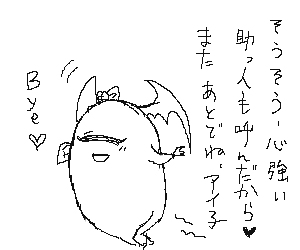 そうそう、心強い
助っ人も呼んだから♥
また あとでね、アイ子
Bye♡